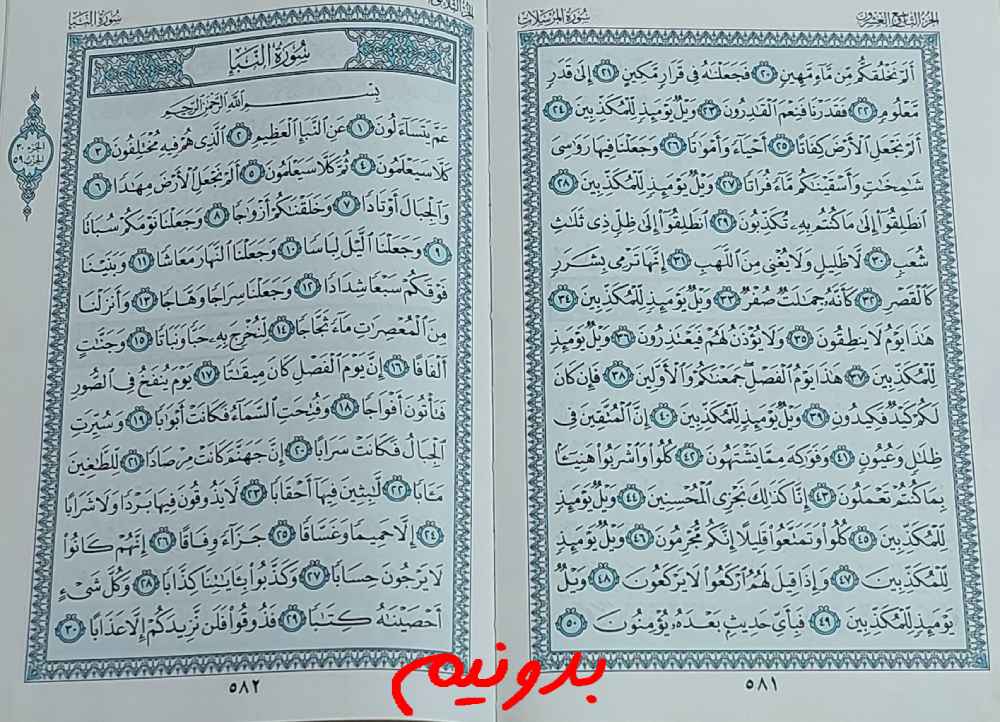 الجزء التاسع والعشرون
سورة المرسلات
أَلَمْ نَخْلُقكُّم مِّن مَّآءٍ مَّهِينٍ ٢٠ فَجَعَلْنَٰهُ فِى قَرَارٍ مَّكِينٍ ٢١ إِلَىٰ قَدَرٍ
مَّعْلُومٍ ٢٢ فَقَدَرْنَا فَنِعْمَ ٱلْقَٰدِرُونَ ٢٣ وَيْلٌ يَوْمَئِذٍ لِّلْمُكَذِّبِينَ ٢٤
أَلَمْ نَجْعَلِ ٱلْأَرْضَ كِفَاتًا ٢٥ أَحْيَآءً وَأَمْوَٰتًا ٢٦ وَجَعَلْنَا فِيهَا رَوَٰسِىَ
شَٰمِخَٰتٍ وَأَسْقَيْنَٰكُم مَّآءً فُرَاتًا ٢٧ وَيْلٌ يَوْمَئِذٍ لِّلْمُكَذِّبِينَ ٢٨
ٱنطَلِقُوٓا۟ إِلَىٰ مَا كُنتُم بِهِۦ تُكَذِّبُونَ ٢٩ ٱنطَلِقُوٓا۟ إِلَىٰ ظِلٍّ ذِى ثَلَٰثِ
شُعَبٍ ٣٠ لَّا ظَلِيلٍ وَلَا يُغْنِى مِنَ ٱللَّهَبِ ٣١ إِنَّهَا تَرْمِى بِشَرَرٍ
كَٱلْقَصْرِ ٣٢ كَأَنَّهُۥ جِمَٰلَتٌ صُفْرٌ ٣٣ وَيْلٌ يَوْمَئِذٍ لِّلْمُكَذِّبِينَ ٣٤
هَٰذَا يَوْمُ لَا يَنطِقُونَ ٣٥ وَلَا يُؤْذَنُ لَهُمْ فَيَعْتَذِرُونَ ٣٦ وَيْلٌ يَوْمَئِذٍ
لِّلْمُكَذِّبِينَ ٣٧ هَٰذَا يَوْمُ ٱلْفَصْلِ ۖ جَمَعْنَٰكُمْ وَٱلْأَوَّلِينَ ٣٨ فَإِن كَانَ
لَكُمْ كَيْدٌ فَكِيدُونِ ٣٩ وَيْلٌ يَوْمَئِذٍ لِّلْمُكَذِّبِينَ ٤٠ إِنَّ ٱلْمُتَّقِينَ فِى
ظِلَٰلٍ وَعُيُونٍ ٤١ وَفَوَٰكِهَ مِمَّا يَشْتَهُونَ ٤٢ كُلُوا۟ وَٱشْرَبُوا۟ هَنِيٓـًٔۢا
بِمَا كُنتُمْ تَعْمَلُونَ ٤٣ إِنَّا كَذَٰلِكَ نَجْزِى ٱلْمُحْسِنِينَ ٤٤ وَيْلٌ يَوْمَئِذٍ
لِّلْمُكَذِّبِينَ ٤٥ كُلُوا۟ وَتَمَتَّعُوا۟ قَلِيلًا إِنَّكُم مُّجْرِمُونَ ٤٦ وَيْلٌ يَوْمَئِذٍ
لِّلْمُكَذِّبِينَ ٤٧ وَإِذَا قِيلَ لَهُمُ ٱرْكَعُوا۟ لَا يَرْكَعُونَ ٤٨ وَيْلٌ
يَوْمَئِذٍ لِّلْمُكَذِّبِينَ ٤٩ فَبِأَىِّ حَدِيثٍۭ بَعْدَهُۥ يُؤْمِنُونَ ٥٠
٥٨١
الجزء الثلاثون
سورة النبإ
سُورَةُ النَّبَإِ
بِسْمِ ٱللَّهِ ٱلرَّحْمَٰنِ ٱلرَّحِيمِ
عَمَّ يَتَسَآءَلُونَ ١ عَنِ ٱلنَّبَإِ ٱلْعَظِيمِ ٢ ٱلَّذِى هُمْ فِيهِ مُخْتَلِفُونَ ٣
كَلَّا سَيَعْلَمُونَ ٤ ثُمَّ كَلَّا سَيَعْلَمُونَ ٥ أَلَمْ نَجْعَلِ ٱلْأَرْضَ مِهَٰدًا ٦
وَٱلْجِبَالَ أَوْتَادًا ٧ وَخَلَقْنَٰكُمْ أَزْوَٰجًا ٨ وَجَعَلْنَا نَوْمَكُمْ سُبَاتًا
٩ وَجَعَلْنَا ٱلَّيْلَ لِبَاسًا ١٠ وَجَعَلْنَا ٱلنَّهَارَ مَعَاشًا ١١ وَبَنَيْنَا
فَوْقَكُمْ سَبْعًا شِدَادًا ١٢ وَجَعَلْنَا سِرَاجًا وَهَّاجًا ١٣ وَأَنزَلْنَا
مِنَ ٱلْمُعْصِرَٰتِ مَآءً ثَجَّاجًا ١٤ لِّنُخْرِجَ بِهِۦ حَبًّا وَنَبَاتًا ١٥ وَجَنَّٰتٍ
أَلْفَافًا ١٦ إِنَّ يَوْمَ ٱلْفَصْلِ كَانَ مِيقَٰتًا ١٧ يَوْمَ يُنفَخُ فِى ٱلصُّورِ
فَتَأْتُونَ أَفْوَاجًا ١٨ وَفُتِحَتِ ٱلسَّمَآءُ فَكَانَتْ أَبْوَٰبًا ١٩ وَسُيِّرَتِ
ٱلْجِبَالُ فَكَانَتْ سَرَابًا ٢٠ إِنَّ جَهَنَّمَ كَانَتْ مِرْصَادًا ٢١ لِّلطَّٰغِينَ
مَـَٔابًا ٢٢ لَّٰبِثِينَ فِيهَآ أَحْقَابًا ٢٣ لَّا يَذُوقُونَ فِيهَا بَرْدًا وَلَا شَرَابًا
٢٤ إِلَّا حَمِيمًا وَغَسَّاقًا ٢٥ جَزَآءً وِفَاقًا ٢٦ إِنَّهُمْ كَانُوا۟
لَا يَرْجُونَ حِسَابًا ٢٧ وَكَذَّبُوا۟ بِـَٔايَٰتِنَا كِذَّابًا ٢٨ وَكُلَّ شَىْءٍ
أَحْصَيْنَٰهُ كِتَٰبًا ٢٩ فَذُوقُوا۟ فَلَن نَّزِيدَكُمْ إِلَّا عَذَابًا ٣٠
الجزء ٣٠
الحزب ٥٩
٥٨٢
بدونیم